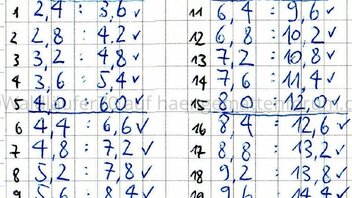 1 2,4 : 3,6 ✓
2 2,8 : 4,2 ✓
3 3,2 : 4,8 ✓
4 3,6 : 5,4 ✓
5 4,0 : 6,0 ✓
6 4,4 : 6,6 ✓
7 4,8 : 7,2 ✓
8 5,2 : 7,8 ✓
9 5,6 : 8,4 ✓
11 6,4 : 9,6 ✓
12 6,8 : 10,2 ✓
13 7,2 : 10,8 ✓
14 7,6 : 11,4 ✓
15 8,0 : 12,0 ✓
16 8,4 : 12,6 ✓
17 8,8 : 13,2 ✓
18 9,2 : 13,8 ✓
19 9,6 : 14,4 ✓